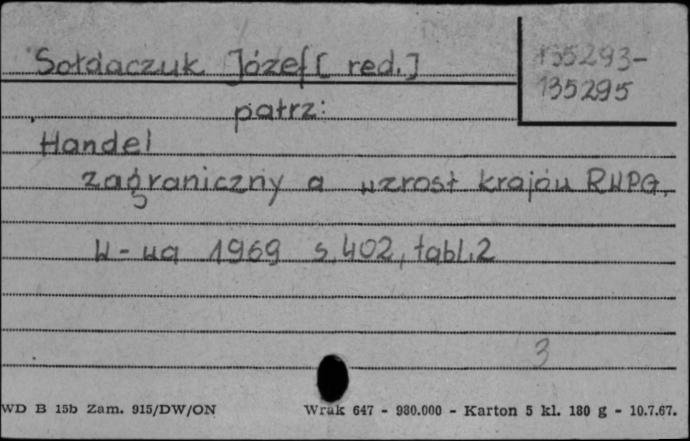 Sołdaczuk Józef [red.]
135293-
135295
patrz:
Handel
zagraniczny a wzrost krajów RWPG.
W-wa 1969 s. 402, tabl. 2
3
WD B 15b Zam. 915/DW/ON
Wrak 647 - 980.000 - Karton 5 kl. 180 g - 10.7.67.